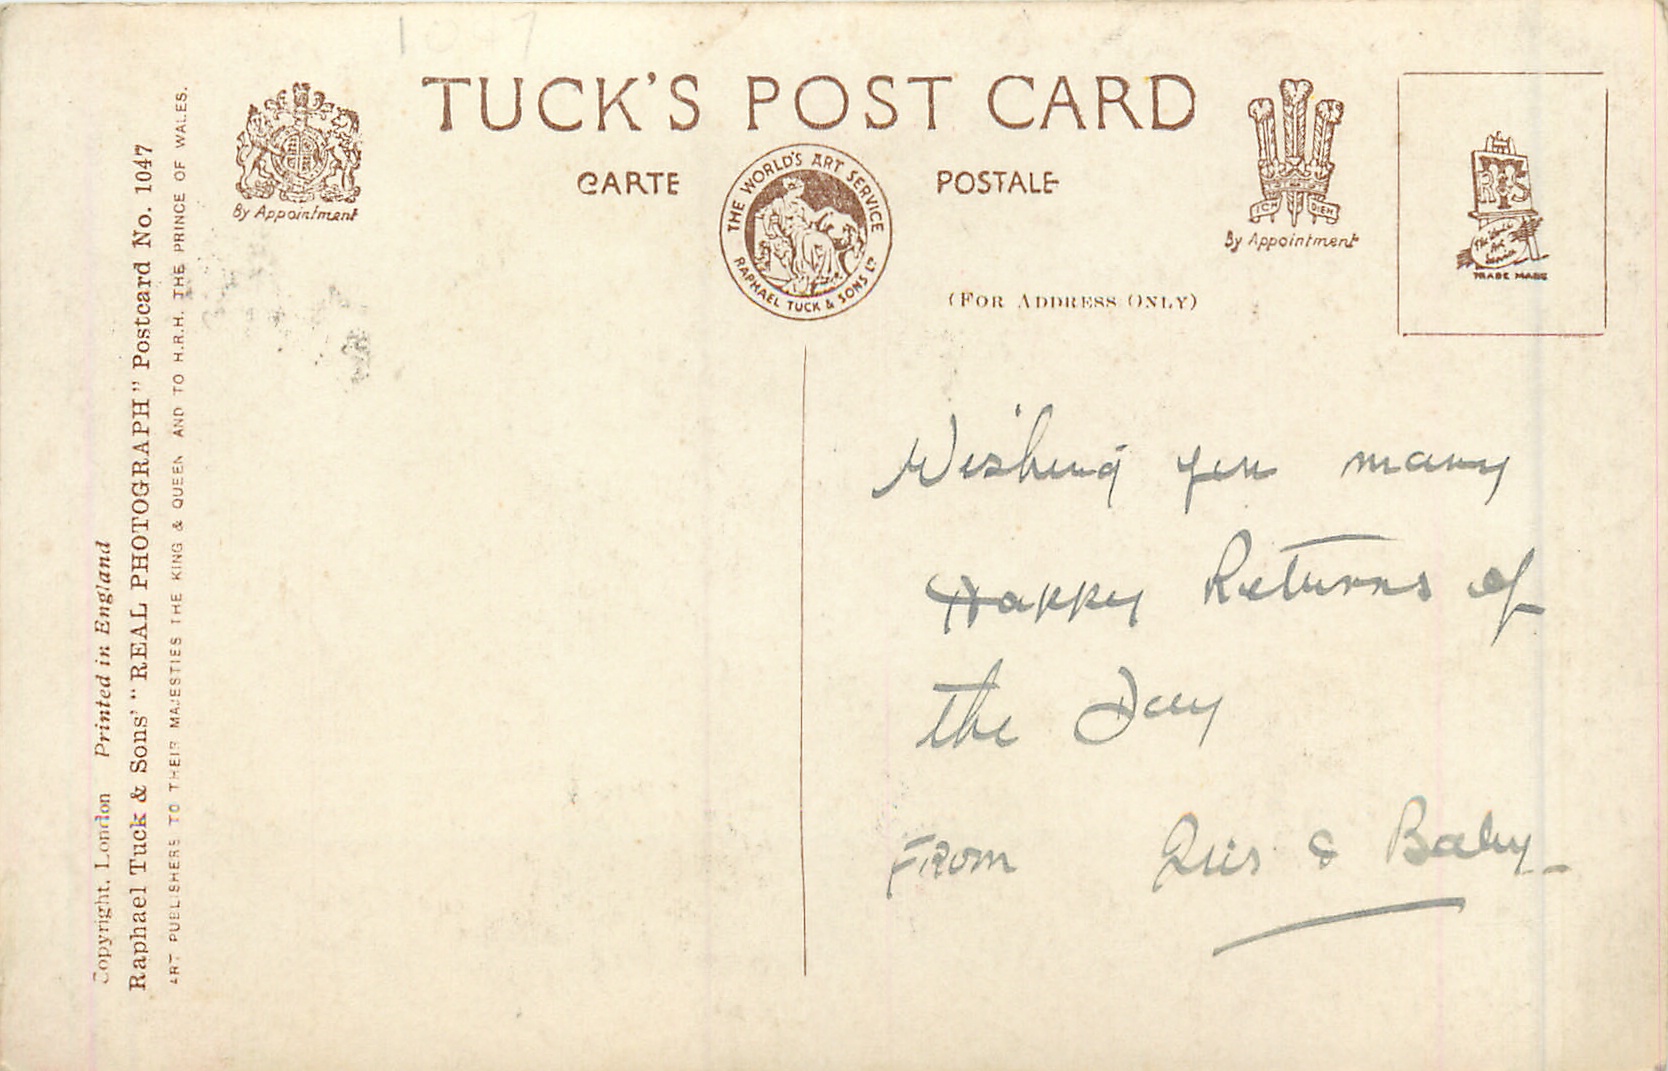 1047
TUCK'S POST CARD
CARTE POSTALE
THE WORLD'S ART SERVICE
RAPHAEL TUCK & SONS LD
By Appointment
ICH DIEN
By Appointment
(FOR ADDRESS ONLY)
TRADE MARK
Copyright. London Printed in England
Raphael Tuck & Sons' "REAL PHOTOGRAPH" Postcard No. 1047
ART PUBLISHERS TO THEIR MAJESTIES THE KING & QUEEN AND TO H.R.H. THE PRINCE OF WALES.
Wishing you many
Happy Returns of
the Day
From & Baby